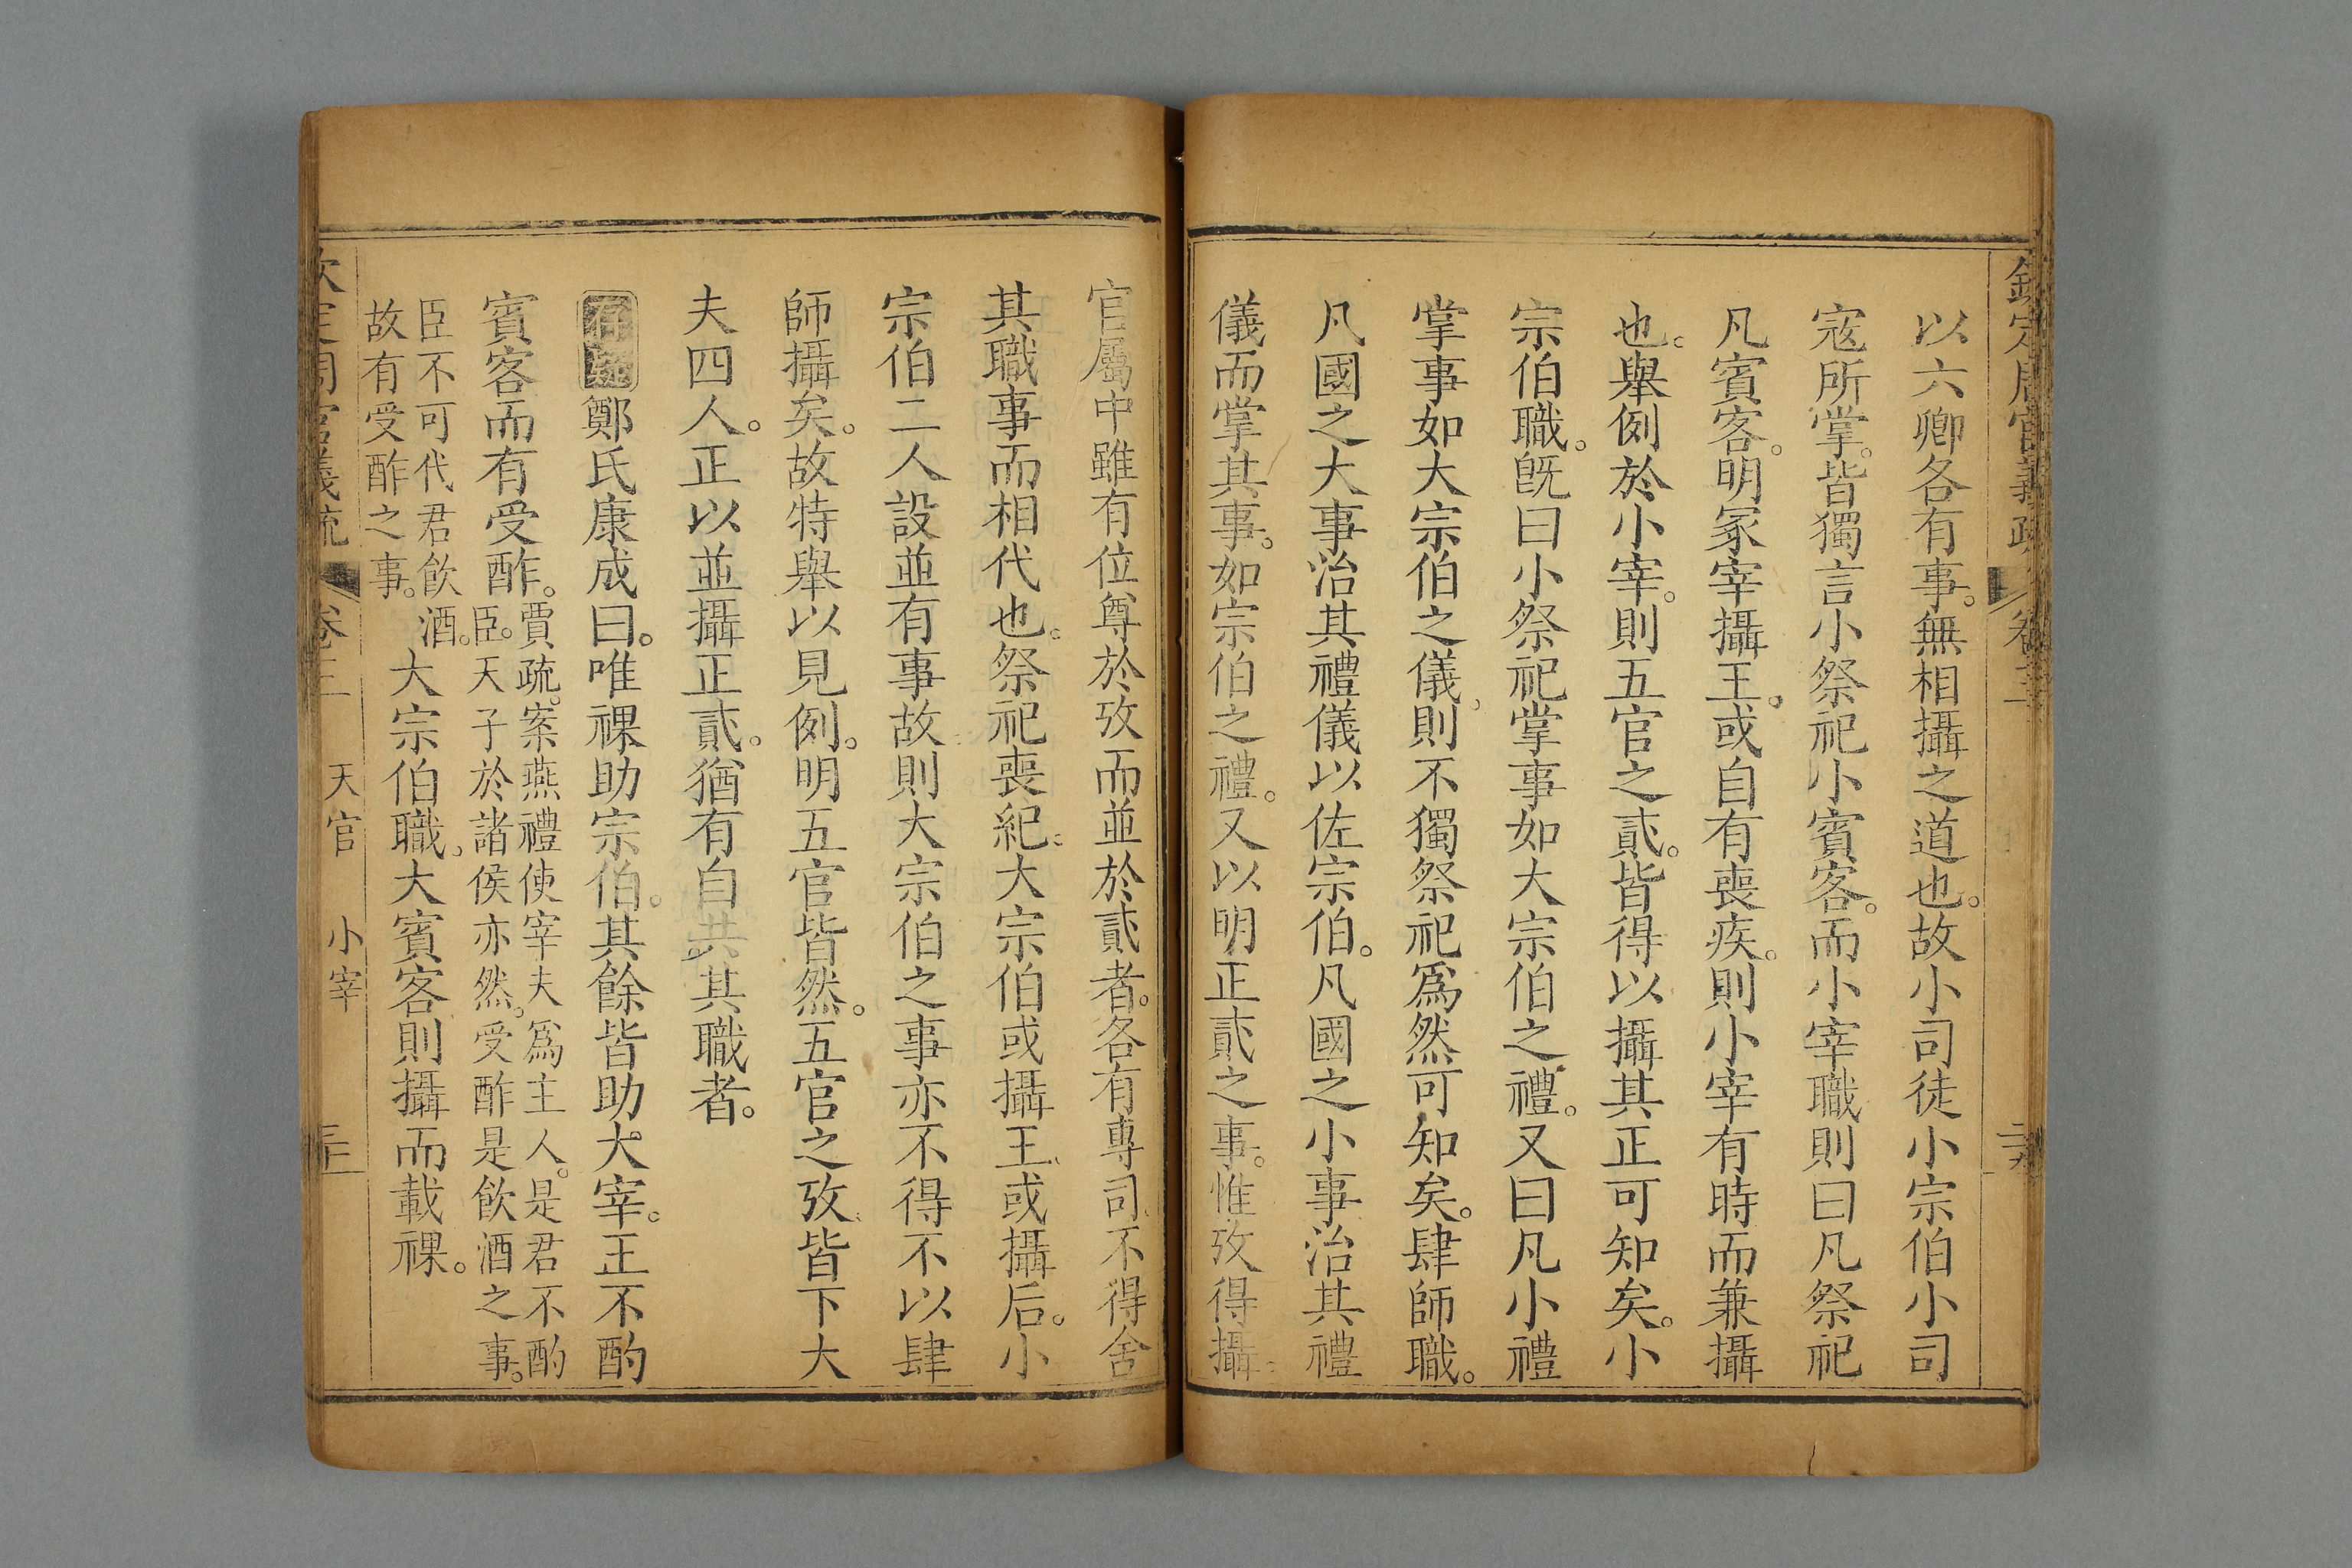 欽定周官義疏 卷三
以六卿各有事。無相攝之道也。故小司徒小宗伯小司
寇所掌。皆獨言小祭祀小賓客。而小宰職則曰凡祭祀
凡賓客。明冢宰攝王。或自有喪疾。則小宰有時而兼攝
也。舉例於小宰。則五官之貳。皆得以攝其正可知矣。小
宗伯職。旣曰小祭祀掌事如大宗伯之禮。又曰凡小禮
掌事如大宗伯之儀。則不獨祭祀爲然可知矣。肆師職。
凡國之大事治其禮儀以佐宗伯。凡國之小事治其禮
儀而掌其事。如宗伯之禮。又以明正貳之事。惟攷得攝。
官屬中雖有位尊於攷而並於貳者。各有專司。不得舍
其職事而相代也。祭祀喪紀。大宗伯或攝王。或攝后。小
宗伯二人設並有事故。則大宗伯之事亦不得不以肆
師攝矣。故特舉以見例。明五官皆然。五官之攷皆下大
夫四人。正以並攝正貳。猶有自共其職者。
存疑鄭氏康成曰。唯祼助宗伯。其餘皆助大宰。王不酌
賓客而有受酢。賈疏。案燕禮使宰夫爲主人。是君不酌
臣。天子於諸侯亦然。受酢是飮酒之事。
臣不可代君飮酒。
故有受酢之事。
大宗伯職。大賓客則攝而載祼。
欽定周官義疏 卷三 天官 小宰 三十